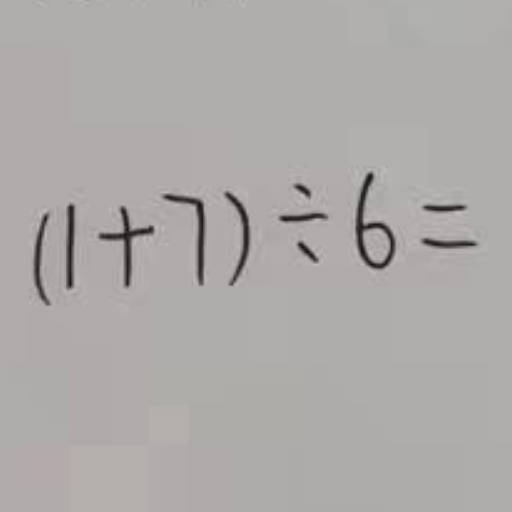 (1+7)÷6=